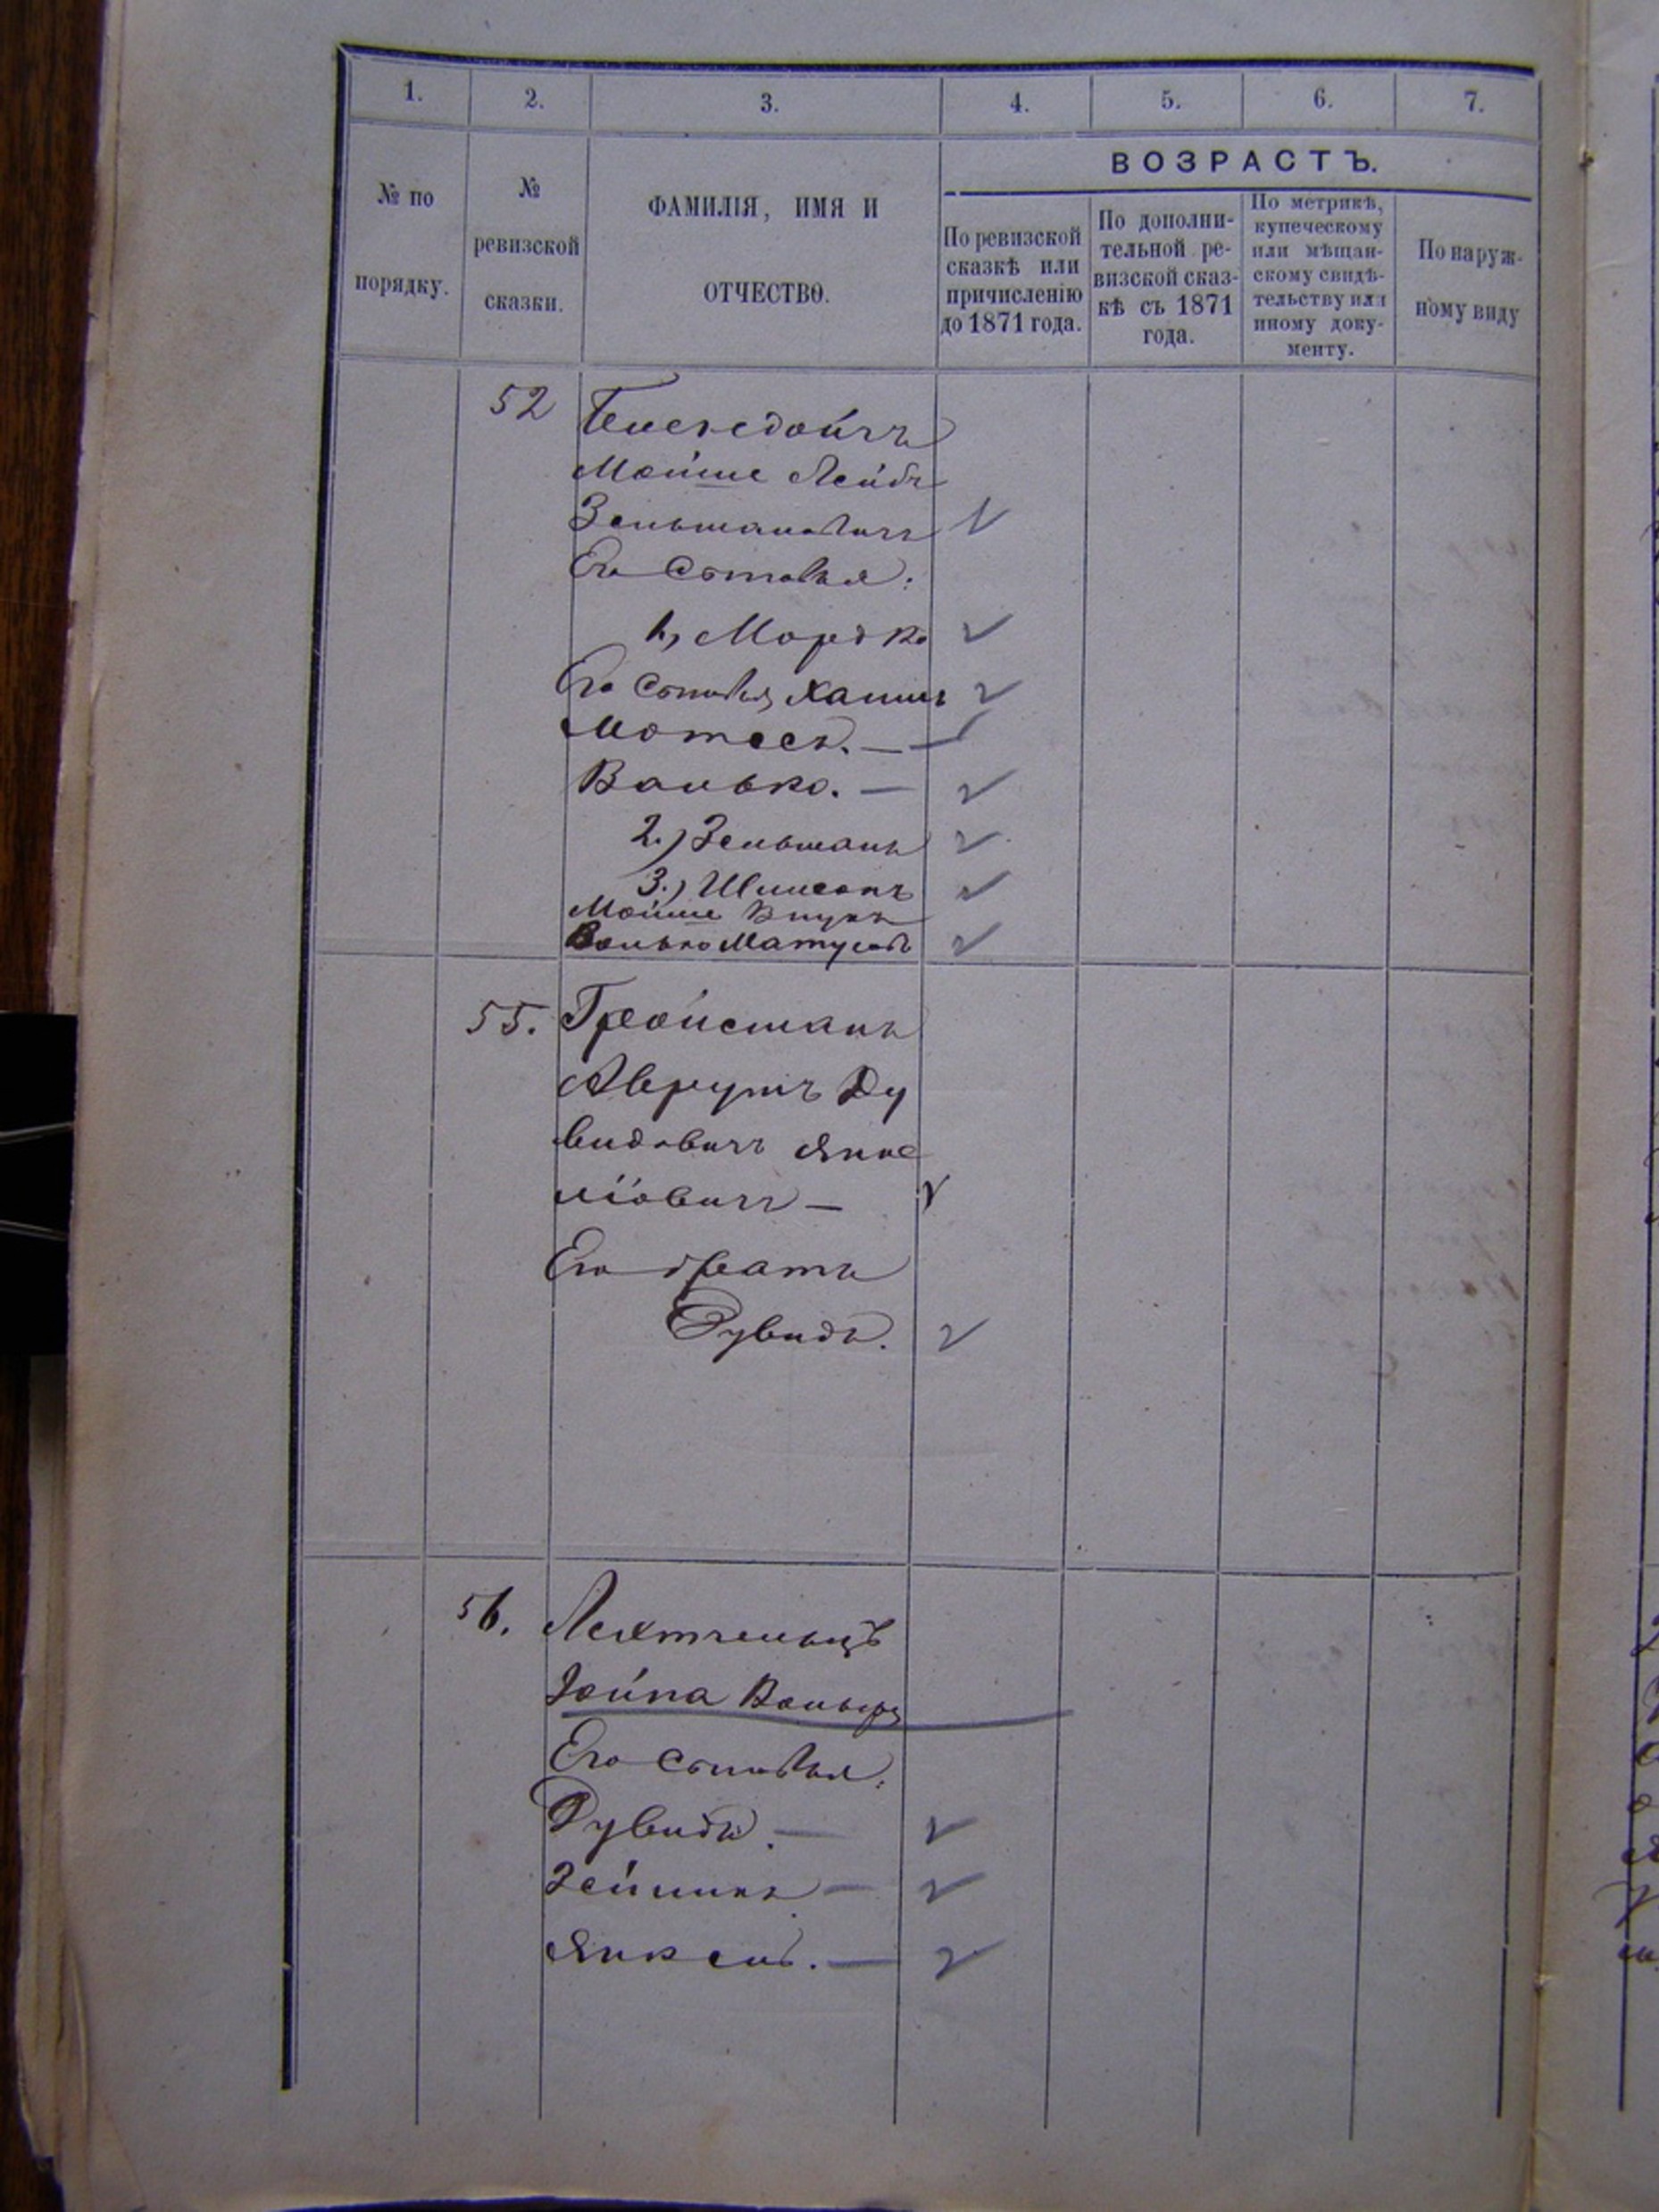 1. 2. 3. 4. 5. 6. 7.
№ по порядку.
№ ревизской сказки.
ФАМИЛІЯ, ИМЯ И ОТЧЕСТВО.
ВОЗРАСТЪ.
По ревизской сказкѣ или причисленію до 1871 года.
По дополни-
тельной ре-
визской сказ-
кѣ съ 1871
года.
По метрикѣ,
купеческому
или мѣщан-
скому свидѣ-
тельству или
иному доку-
менту.
По наруж-
ному виду
52
Мойше Лейбъ
Зельмановичъ
Его Сыновья:
1, Мордко
Его Сыновья, Хаимъ
Мотесъ. —
Волько. —
2.) Зельманъ
3.) Шимсонъ
Мойше Внукъ
Волько
55. Гройсманъ
Аврумъ Ду
видовичъ Янке
ліовичъ —
Его братъ
Дувидъ.
56.
Іойна
Его Сыновья:
Дувидъ. —
Зейликъ —
Янкель. —